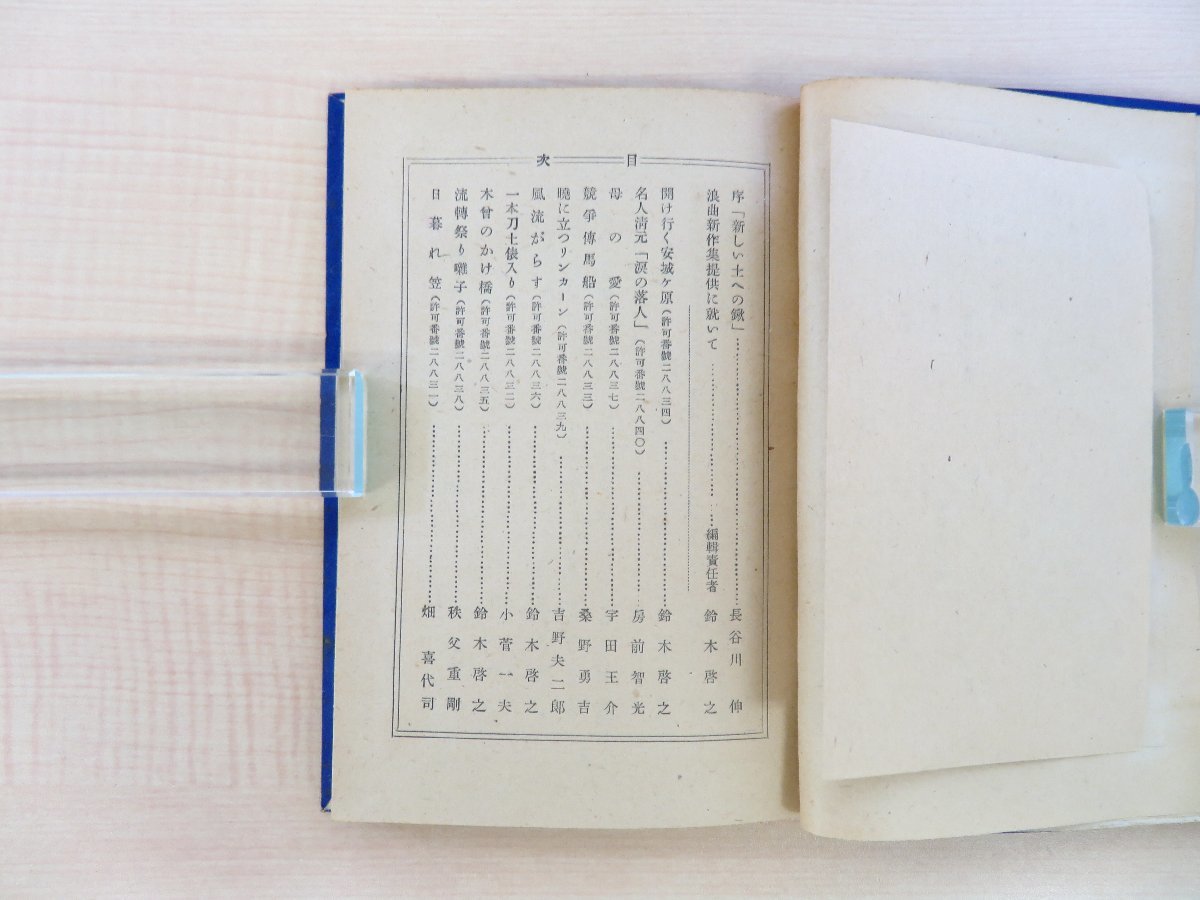 目次
序「新しい土への鍬」…長谷川伸
浪曲新作集提供に就いて…編輯責任者 鈴木啓之
開け行く安城ヶ原(許可番號二八八三四)…鈴木啓之
名人淸元「淚の落人」(許可番號二八八四〇)…房前智光
母の愛(許可番號二八八三七)…宇田王介
競爭傳馬船(許可番號二八八三三)…桑野勇吉
曉に立つリンカーン(許可番號二八八三九)…吉野夫二郎
風流がらす(許可番號二八八三六)…鈴木啓之
一本刀土俵入り(許可番號二八八三二)…小菅一夫
木曾のかけ橋(許可番號二八八三五)…鈴木啓之
流轉祭り囃子(許可番號二八八三八)…秩父重剛
日暮れ笠(許可番號二八八三一)…畑喜代司